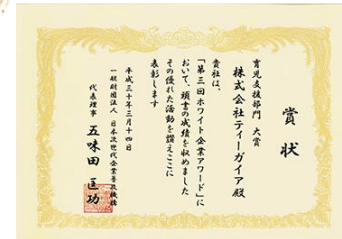 賞状
育児支援部門 大賞
株式会社ティーガイア殿
貴社は、
「第三回ホワイト企業アワード」に
おいて、頭書の成績を収めました
その優れた活動を讃えここに
表彰します
平成三十年三月十四日
一般財団法人 日本次世代企業普及機構
代表理事 五味田 匡功